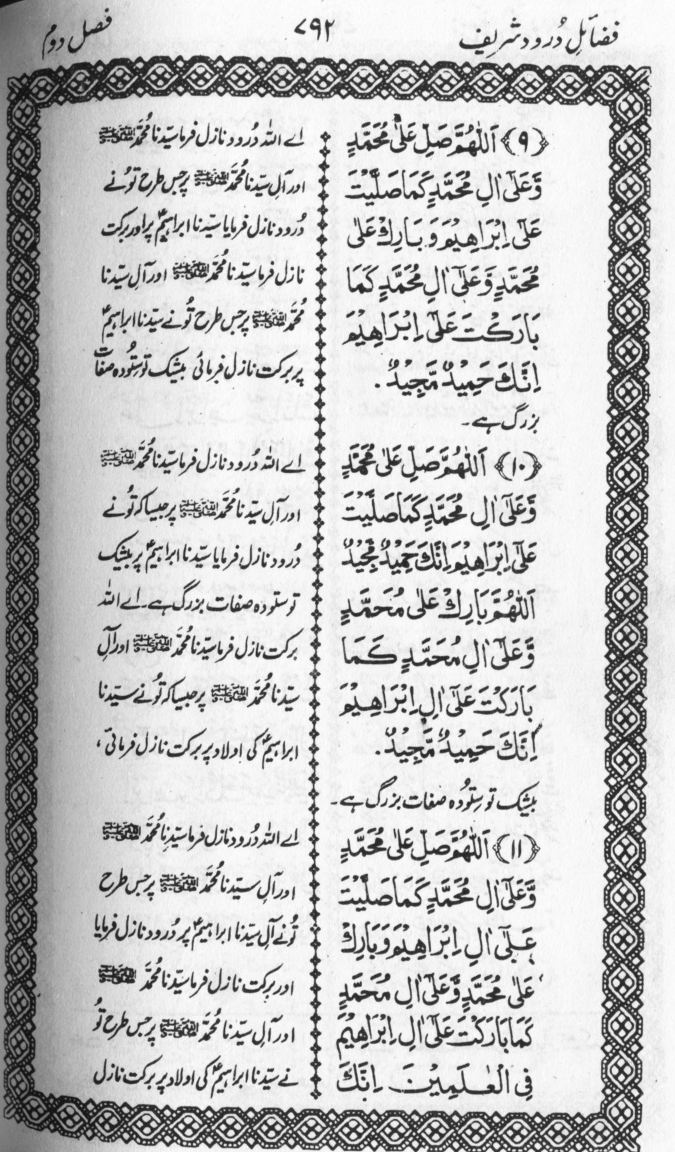 فضائلِ دُرود شریف
۷۹۲
فصل دوم
﴿۹﴾ اَللّٰهُمَّ صَلِّ عَلٰى مُحَمَّدٍ
وَّعَلٰٓى اٰلِ مُحَمَّدٍ كَمَا صَلَّيْتَ
عَلٰٓى اِبْرَاهِيْمَ وَبَارِكْ عَلٰى
مُحَمَّدٍ وَّعَلٰٓى اٰلِ مُحَمَّدٍ كَمَا
بَارَكْتَ عَلٰٓى اِبْرَاهِيْمَ
اِنَّكَ حَمِيْدٌ مَّجِيْدٌ۔
اے اللہ دُرود نازل فرما سیّدنا مُحمَّد ﷺ
اور آلِ سیّدنا مُحمَّد ﷺ پر جس طرح تُو نے
دُرود نازل فرمایا سیّدنا ابراہیمؑ پر اور برکت
نازل فرما سیّدنا مُحمَّد ﷺ اور آلِ سیّدنا
مُحمَّد ﷺ پر جس طرح تُو نے سیّدنا ابراہیمؑ
پر برکت نازل فرمائی بیشک تو ستُودہ صفات
بزرگ ہے۔
﴿۱۰﴾ اَللّٰهُمَّ صَلِّ عَلٰى مُحَمَّدٍ
وَّعَلٰٓى اٰلِ مُحَمَّدٍ كَمَا صَلَّيْتَ
عَلٰٓى اِبْرَاهِيْمَ اِنَّكَ حَمِيْدٌ مَّجِيْدٌ
اَللّٰهُمَّ بَارِكْ عَلٰى مُحَمَّدٍ
وَّعَلٰٓى اٰلِ مُحَمَّدٍ كَمَا
بَارَكْتَ عَلٰٓى اٰلِ اِبْرَاهِيْمَ
اِنَّكَ حَمِيْدٌ مَّجِيْدٌ۔
اے اللہ دُرود نازل فرما سیّدنا مُحمَّد ﷺ
اور آلِ سیّدنا مُحمَّد ﷺ پر جیسا کہ تُو نے
دُرود نازل فرمایا سیّدنا ابراہیمؑ پر بیشک
تو ستودہ صفات بزرگ ہے۔ اے اللہ
برکت نازل فرما سیّدنا مُحمَّد ﷺ اور آلِ
سیّدنا مُحمَّد ﷺ پر جیسا کہ تُو نے سیّدنا
ابراہیمؑ کی اولاد پر برکت نازل فرمائی،
بیشک تو ستُودہ صفات بزرگ ہے۔
﴿۱۱﴾ اَللّٰهُمَّ صَلِّ عَلٰى مُحَمَّدٍ
وَّعَلٰٓى اٰلِ مُحَمَّدٍ كَمَا صَلَّيْتَ
عَلٰٓى اٰلِ اِبْرَاهِيْمَ وَبَارِكْ
عَلٰى مُحَمَّدٍ وَّعَلٰٓى اٰلِ مُحَمَّدٍ
كَمَا بَارَكْتَ عَلٰٓى اٰلِ اِبْرَاهِيْمَ
فِى الْعٰلَمِيْنَ اِنَّكَ
اے اللہ دُرود نازل فرما سیّدنا مُحمَّد ﷺ
اور آلِ سیّدنا مُحمَّد ﷺ پر جس طرح
تُو نے آلِ سیّدنا ابراہیمؑ پر دُرود نازل فرمایا
اور برکت نازل فرما سیّدنا مُحمَّد ﷺ
اور آلِ سیّدنا مُحمَّد ﷺ پر جس طرح تُو
نے سیّدنا ابراہیمؑ کی اولاد پر برکت نازل